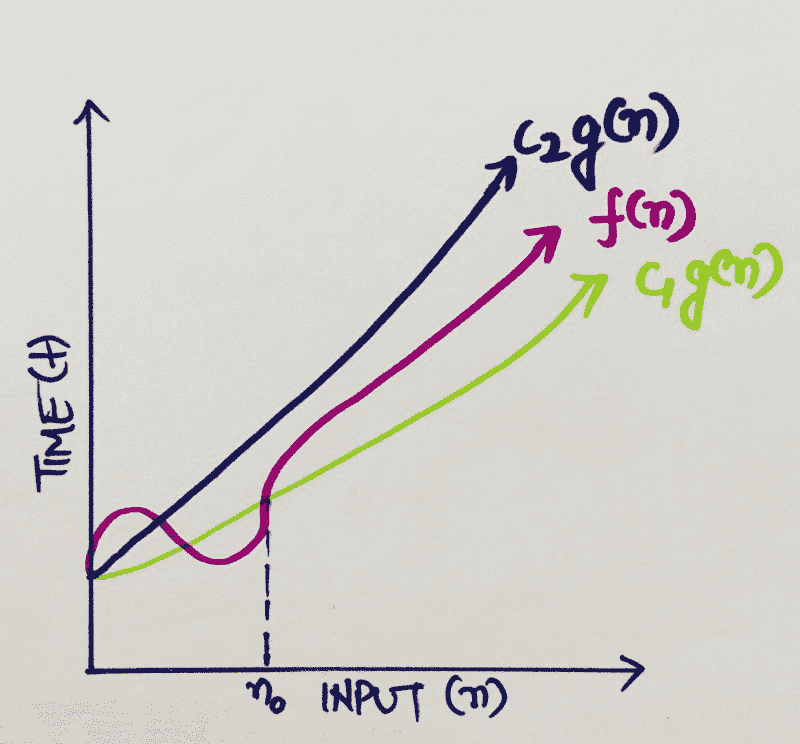 C₂g(n)
f(n)
C₁g(n)
TIME (t)
n₀ INPUT (n)